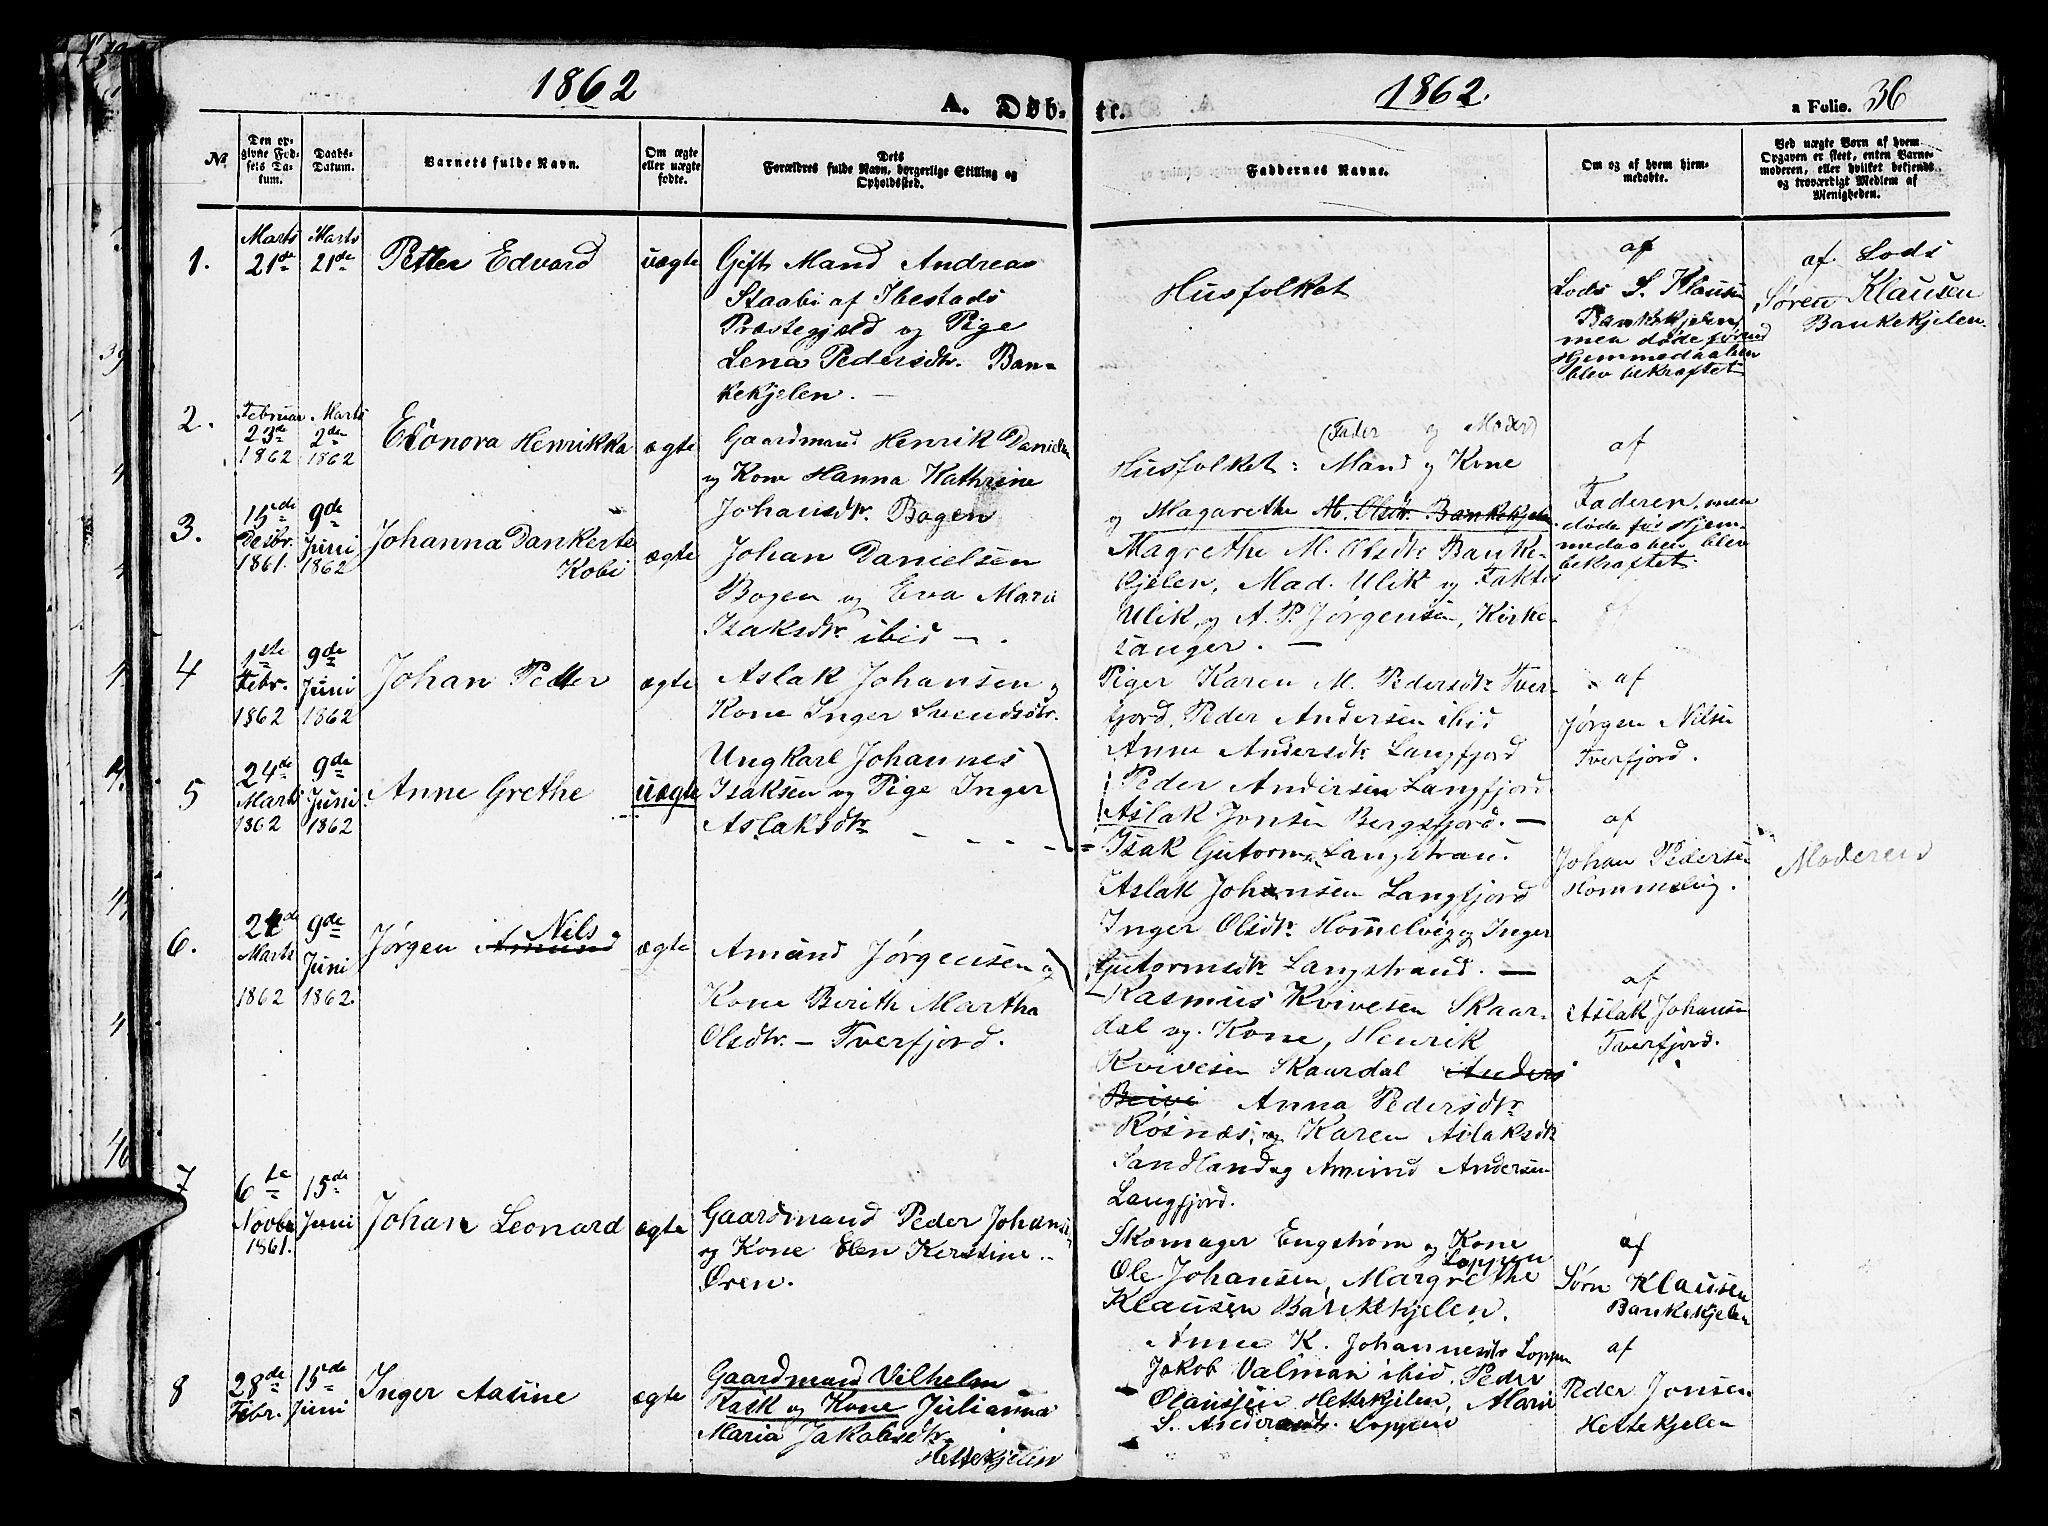 1862
A. Døb-
1862.
te.
a Folio. 36
No.
Den opgivne Fødsels Datum.
Daabs-Datum.
Barnets fulde Navn.
Om ægte eller uægte fødte.
Dets Forældres fulde Navn, borgerlige Stilling og Opholdssted.
Faddernes Navne.
Om og af hvem hjemmedøbte.
Ved uægte Børn af hvem Opgaven er skeet, enten Barnemoderen, eller hvilket bekjendt og troværdigt Medlem af Menigheden.
1.
Marts
21de
Marts
21de
Petter Edvard
uægte
Gift Mand Andreas
Staabi af Ibestads
Præstegjeld og Pige
Lena Pedersdtr. Ban-
kekjelen.
Husfolket
af
Lods S. Klausen
Bankekjelen,
men døde førend
Hjemmedaaben
blev bekræftet
af Lods
Søren Klausen
Bankekjelen.
2.
Februar
23de
1862
Marts
2den
1862
Elonora Henrikka
ægte
Gaardmand Henrik Danielsen
og Kone Hanna Kathrine
Johansdtr. Bogen
(Fader og Moder)
Husfolket: Mand og Kone
og Magarethe M. Olsdtr. Bankekjelen
af
Faderen, men
døde før Hjem-
medaaben blev
bekræftet.
3.
15de
Decbr.
1861.
9de
Juni
1862
Johanna Dankerte
Kobi
ægte
Johan Danielsen
Bogen og Eva Marie
Isaksdtr. ibid -.
Magrethe M. Olsdtr Banke-
kjelen, Mad. Ulik og Faktor
Ulik, og A. P. Jørgensen, Kirke-
sanger. -
4
1ste
Febr.
1862
9de
Juni
1862
Johan Petter
ægte
Aslak Johansen og
Kone Inger Svendsdtr.
Piger Karen M. Pedersdtr Tver-
fjord, Peder Andersen ibid
Anne Andersdtr Langfjord
Peder Andersen Langfjord
af
Jørgen Nilsen
Tverfjord.
5
24de
Marts
1862
9de
Juni
1862
Anne Grethe
uægte
Ungkarl Johannes
Isaksen og Pige Inger
Aslaksdtr
Aslak Jonsen Bergsfjord. -
Isak Gutorm. Langstran.
Aslak Johansen Langfjord
Inger Olsdtr. Hommelvig og Inger
Gutormsdtr Langstrand. -
af
Johan Pedersen
Hommelvig.
Moderen
6.
24de
Marts
1862
9de
Juni
1862.
Jørgen Amund Nils
ægte
Amund Jørgensen og
Kone Berith Martha
Olsdtr. - Tverfjord.
Rasmus Kvivesen Skaar-
dal og Kone, Henrik
Kvivesen Skaardal Anders
Beivi Anna Pedersdtr
Røsnæs, og Karen Aslaksdtr
Sandland og Amund Andersen
Langfjord.
af
Aslak Johansen
Tverfjord.
7
6te
Novbr
1861.
15de
Juni
Johan Leonard
ægte
Gaardmand Peder Johans.
og Kone Elen Kerstine
Øren.
Skomager Engstrøm og Kone
Loppen
Ole Johansen, Margrethe
Klausen Bankekjelen.
af
Sørn Klausen
Bankekjelen
8
28de
Febr.
15de
Juni
Inger Aasine
ægte
Gaardmand Vilhelm
Rask og Kone Julianna
Maria Jakobsdtr.
Hettekjelen
Anne K. Johannesdtr Loppen
Jakob Valman ibid. Peder
Olaussen Hettekjelen, Maria
S. Andersdtr. Loppen
af
Peder Jonsen
Hettekjelen